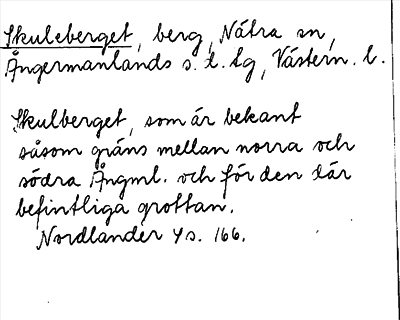 Skuleberget, berg, Nätra sn,
Ångermanlands s. t. lg, Västern. l.
Skulberget, som är bekant
såsom gräns mellan norra och
södra Ångml. och för den där
befintliga grottan.
Nordlander Ys. 166.